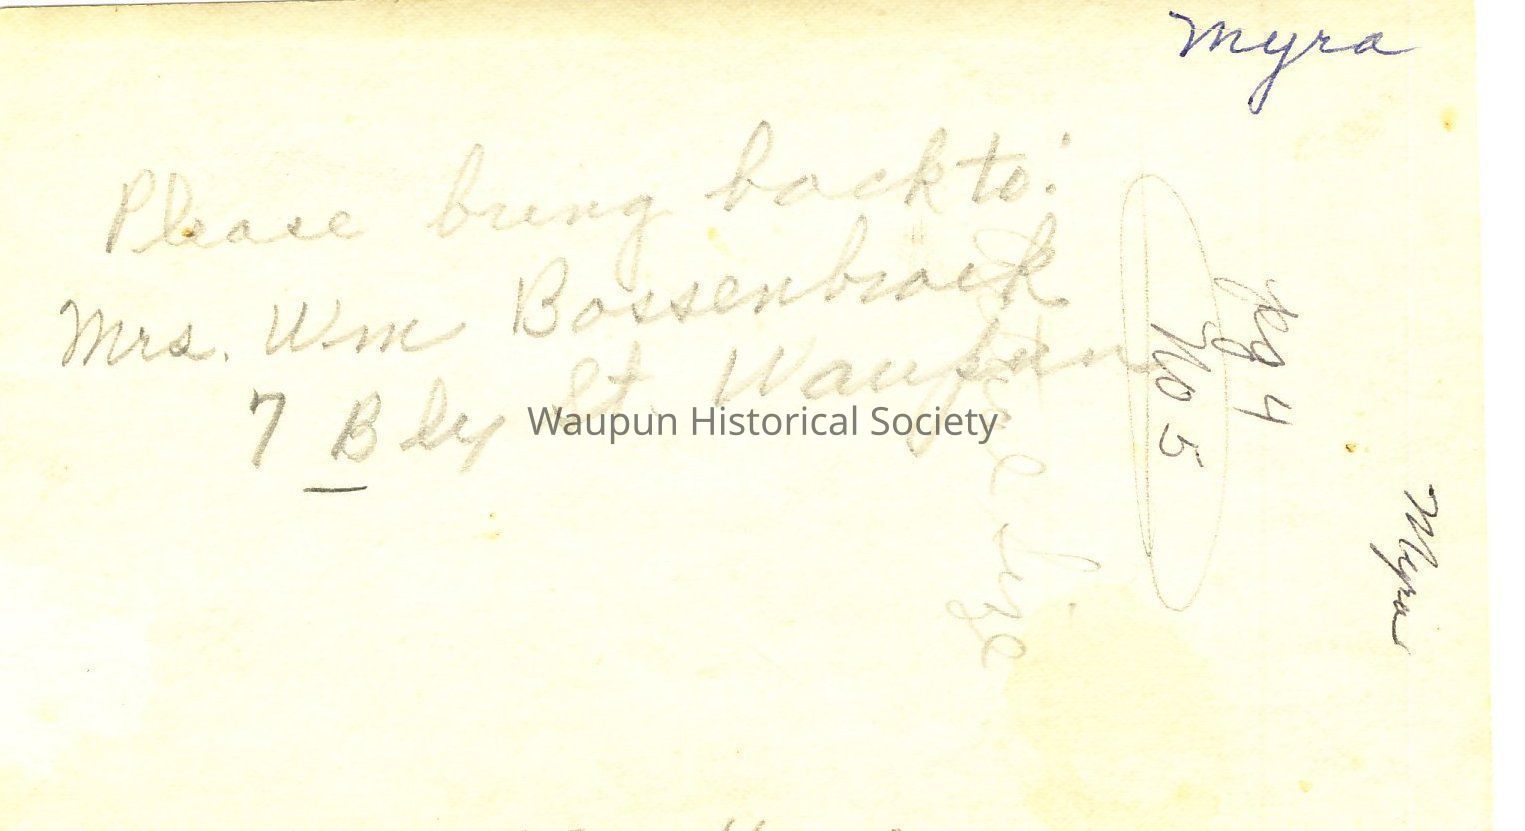 Myra
Please bring back to:
Mrs. Wm Bossenbroek
7 Bly St. Waupun
Waupun Historical Society
pg 4
No 5
size
Myra